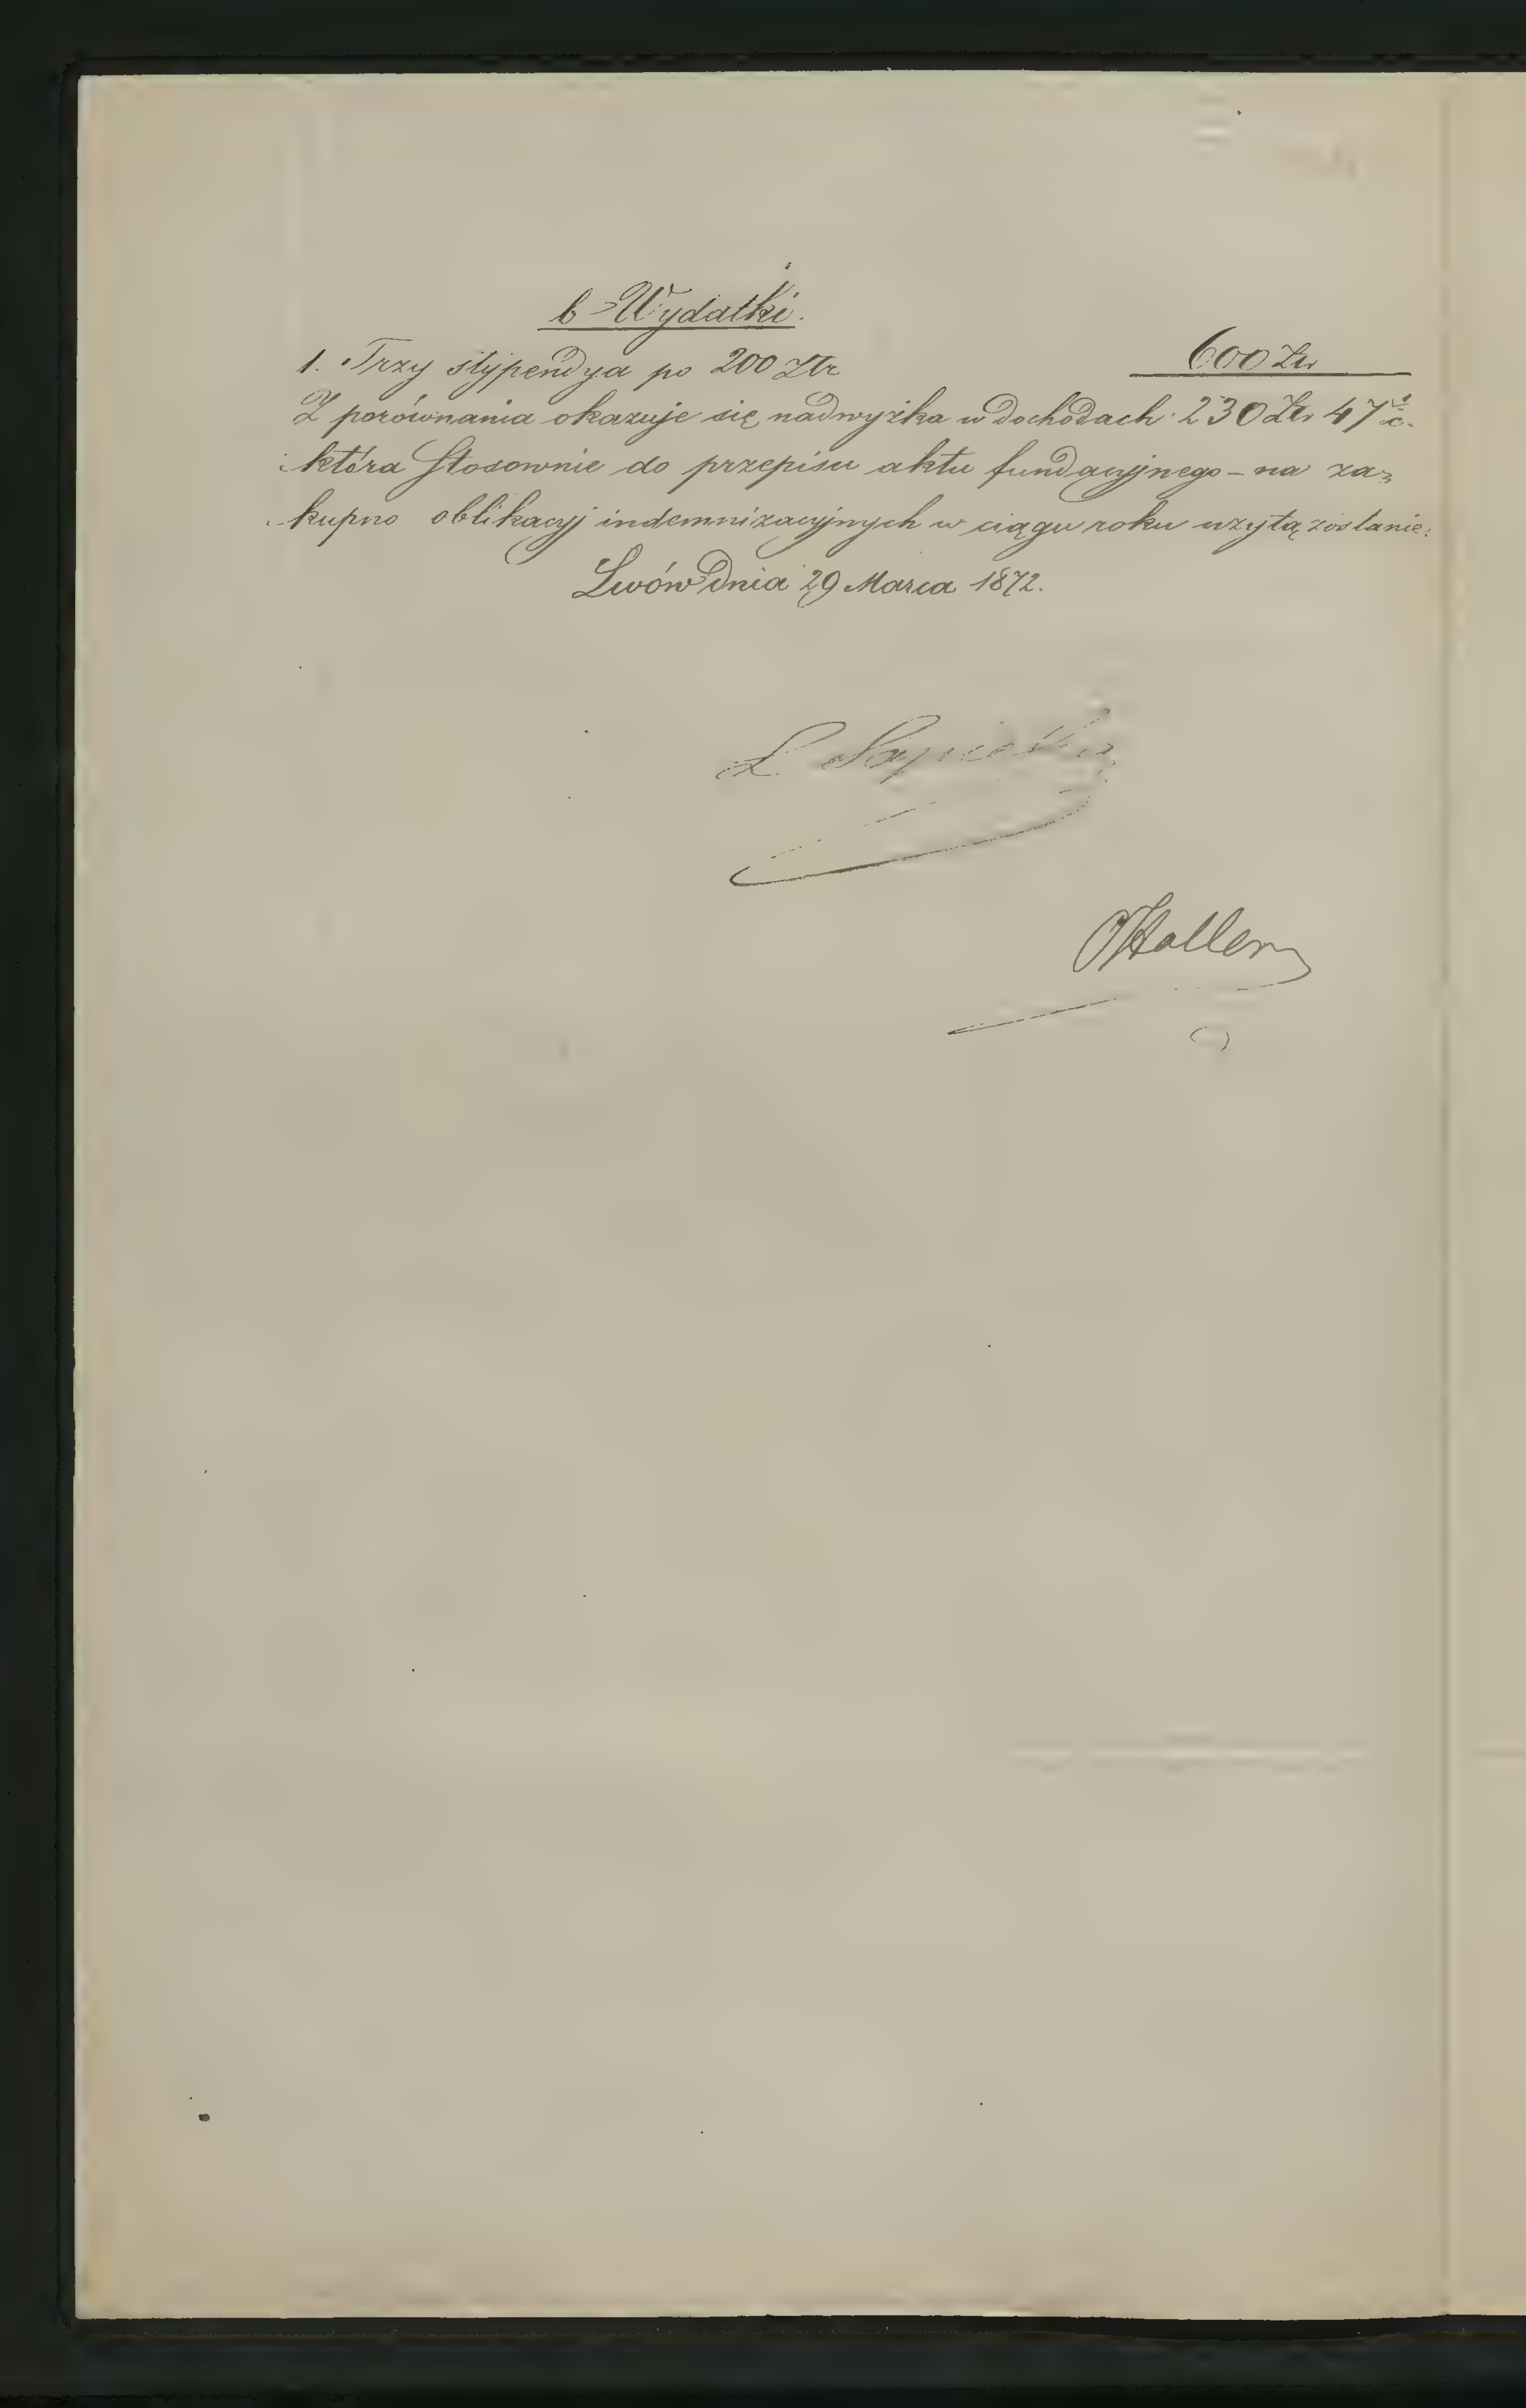 b Wydatki.
1. Trzy stypendya po 200 Złr 600 Złr
Z porównania okazuje się nadwyżka w dochodach 230 Złr 47 ½ c.
która stosownie do przepisu aktu fundacyjnego – na za=
kupno oblikacyj indemnizacyjnych w ciągu roku użytą zostanie.
Lwów dnia 29 Marca 1872.
L Sapieha
Haller